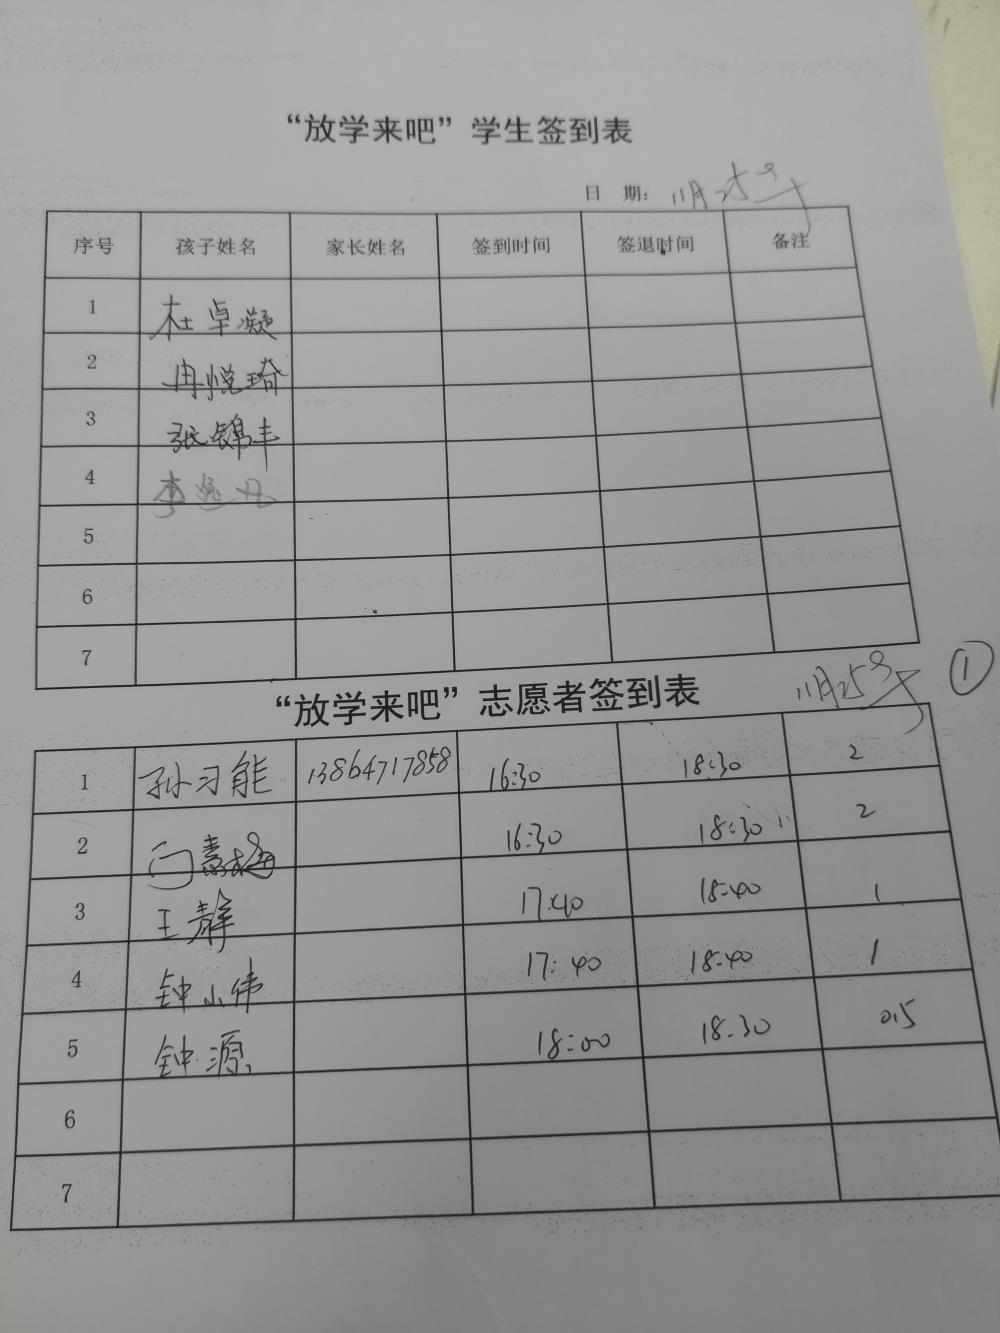 “放学来吧”学生签到表
日 期: 11月25号
序号 孩子姓名 家长姓名 签到时间 签退时间 备注
1 杜卓凝
2 冉悦琦
3 张锦丰
4 李
5
6
7
“放学来吧”志愿者签到表 11月25号 ①
1 孙习能 13864717858 16:30 18:30 2
2 闫素梅 16:30 18:30 2
3 王静 17:40 18:40 1
4 钟小伟 17:40 18:40 1
5 钟源 18:00 18:30 0.5
6
7